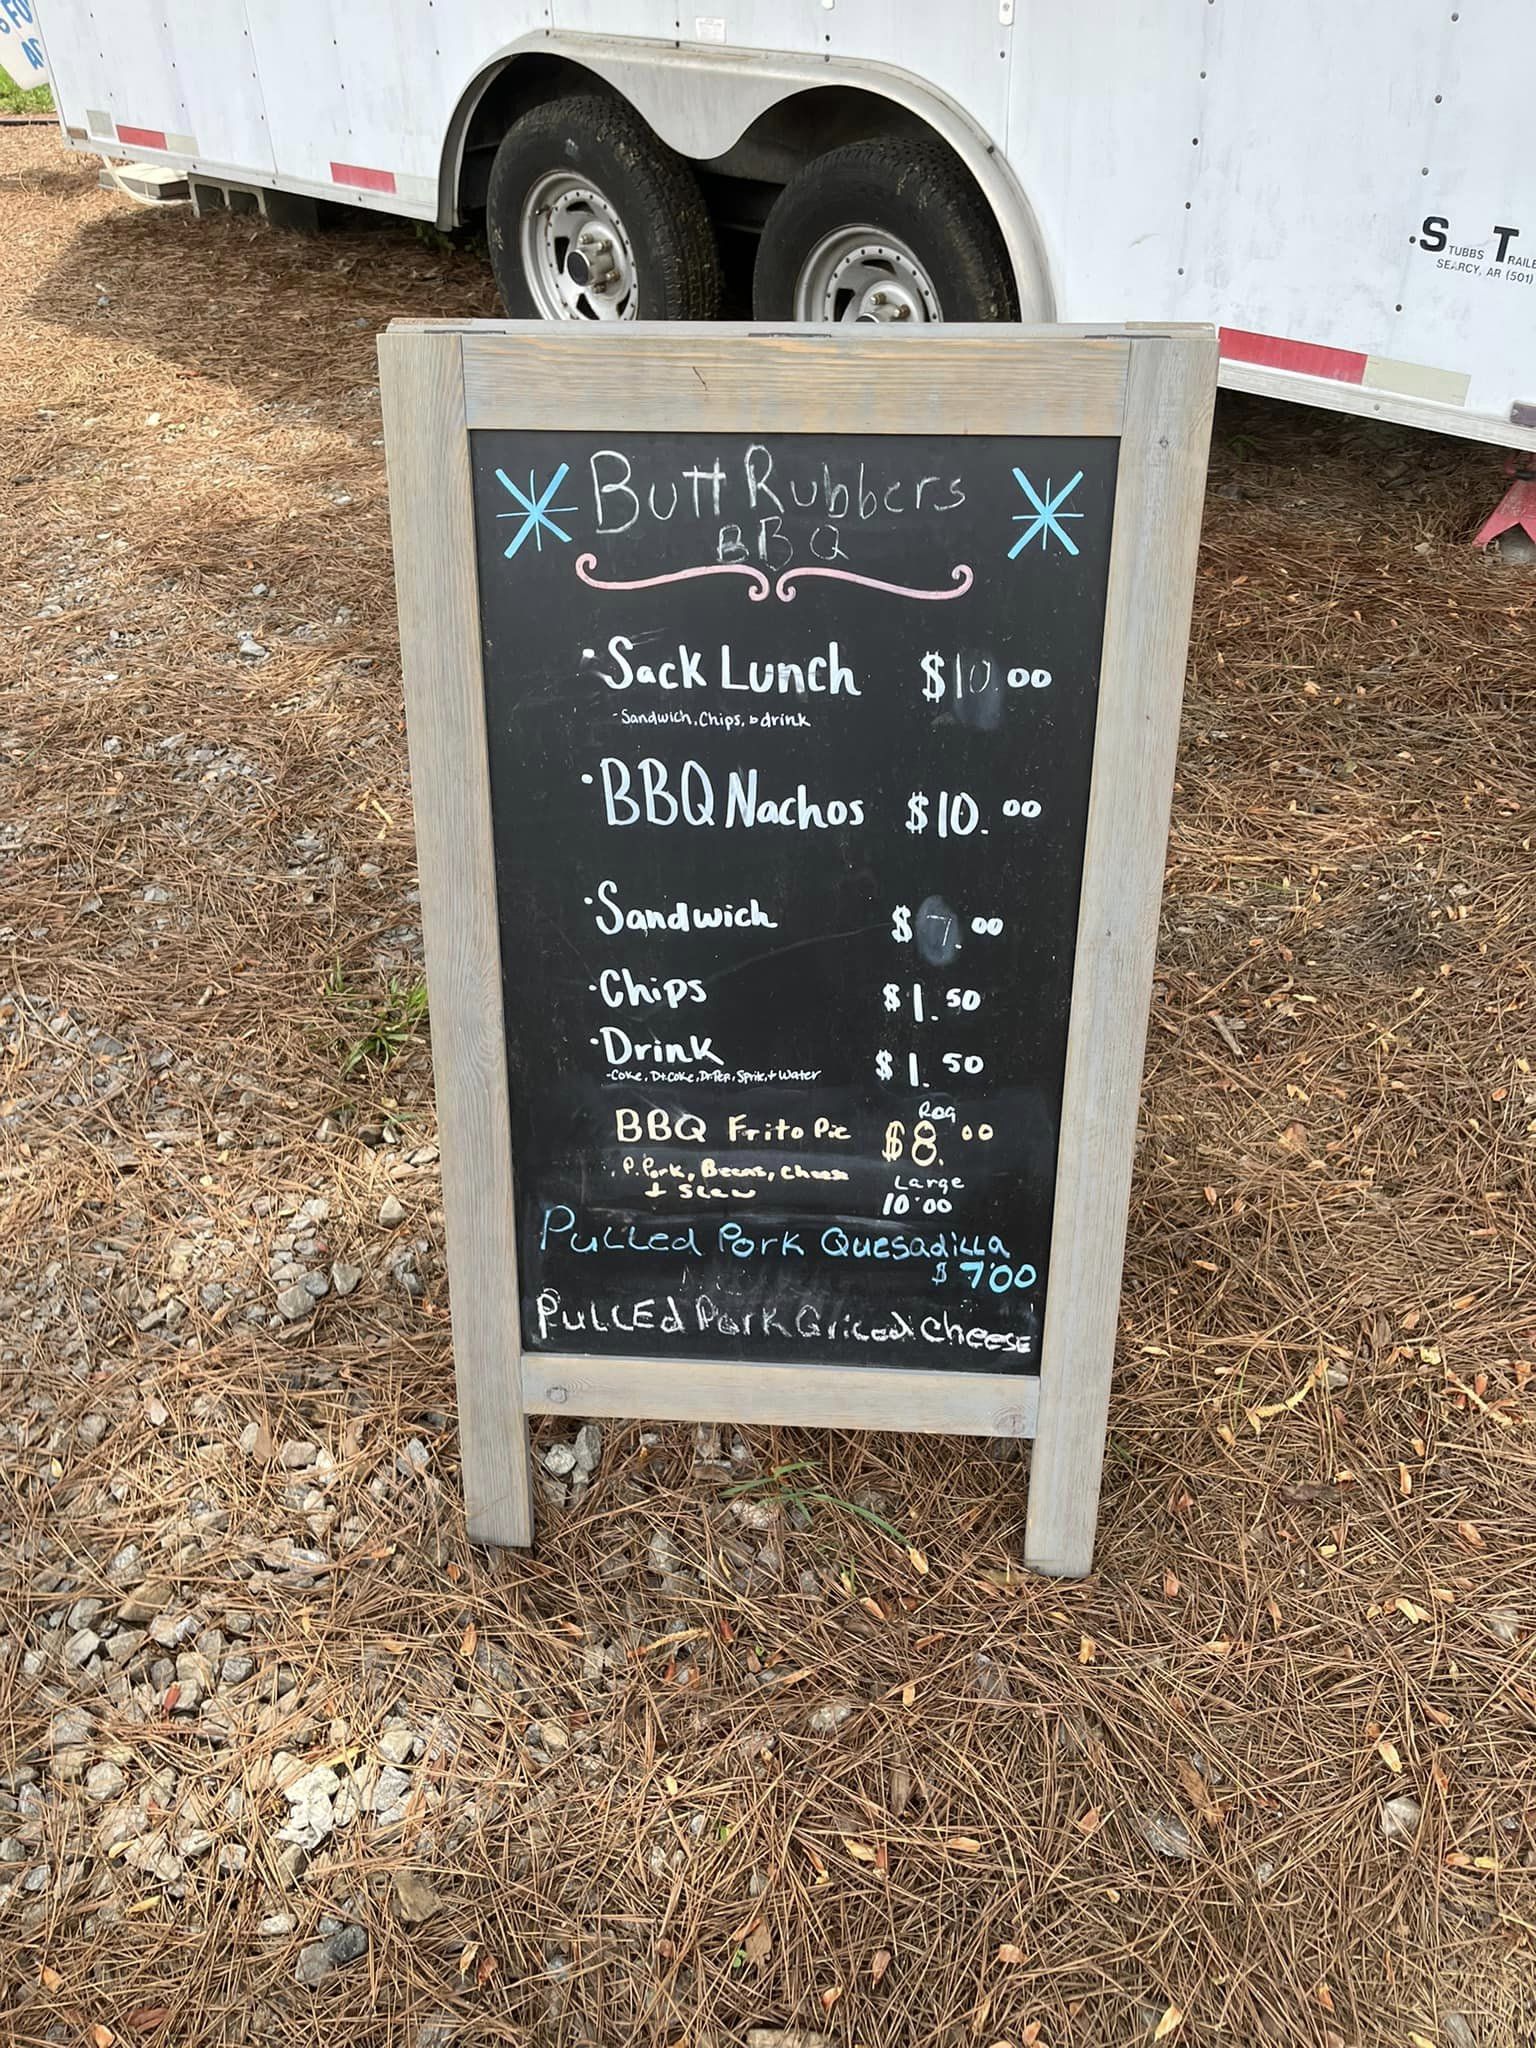 FO
AC
STUBBS TRAILE
SEARCY, AR (501)
Butt Rubbers
BBQ
·Sack Lunch $10.00
-Sandwich, Chips, & drink
·BBQ Nachos $10.00
·Sandwich $7.00
·Chips $1.50
·Drink $1.50
-Coke, Dt.Coke, Dr.Pep, Sprite, + Water
Reg
BBQ Frito Pie $8.00
P. Pork, Beans, Cheese
+ Slaw
Large
10.00
Pulled Pork Quesadilla
$7.00
Pulled Pork Griled Cheese